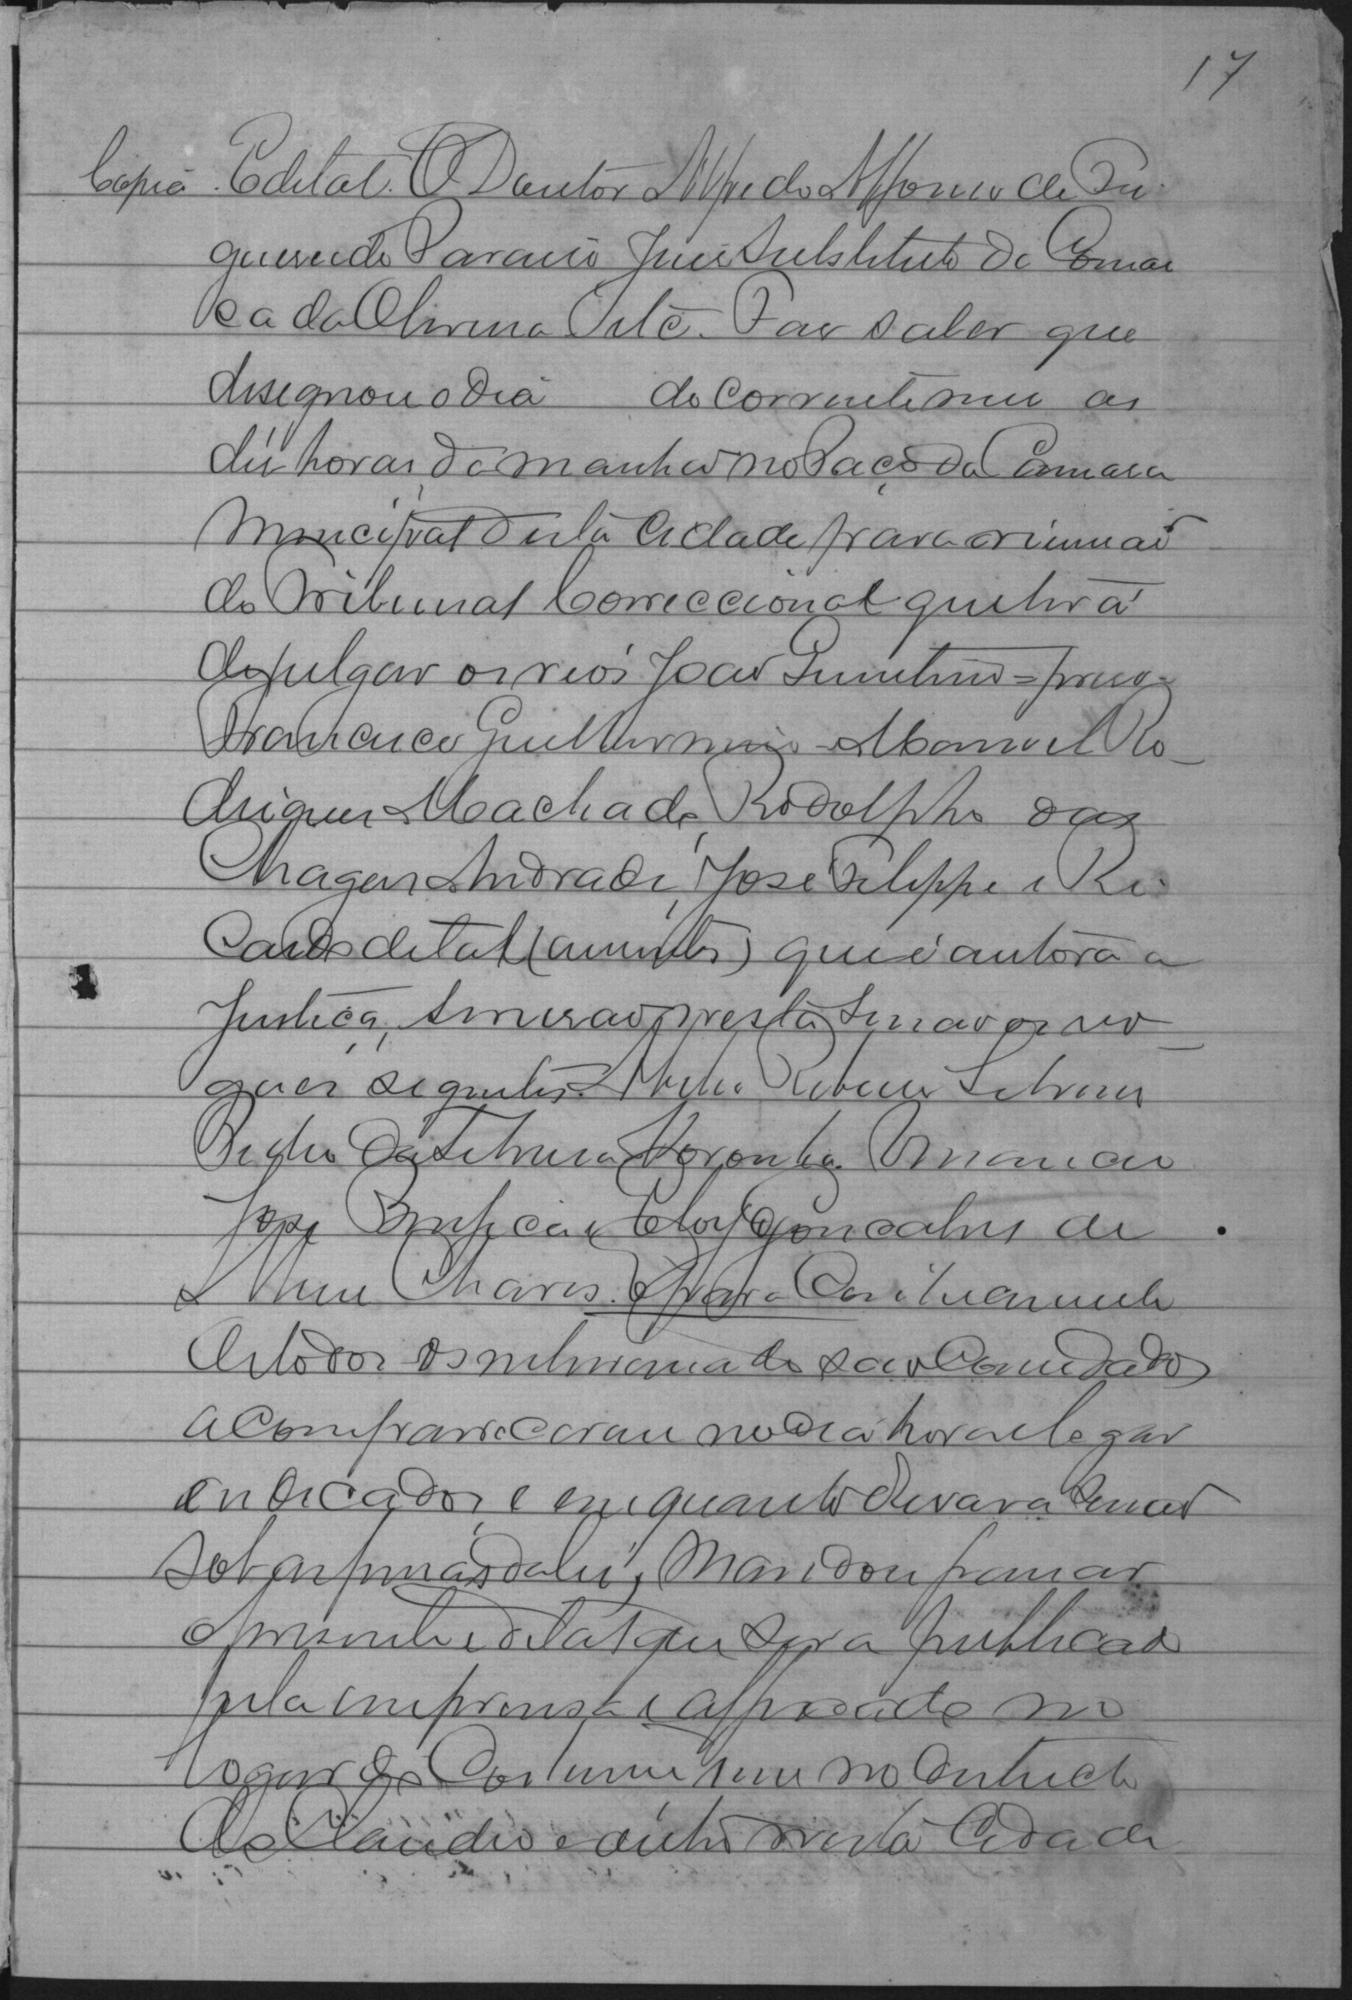 17
Copia. Edital. O Doutor Alfredo Affonso de Fi-
gueredo Paraiso Juiz Substituto da Comar
ca da Oliveira Etc. Faz saber que
desegnou o dia do corrente mez as
dez horas da manhã no Paço da Camara
Muncipal desta Cidade para a reunião
do Tribunal Correccional que terá
de julgar os reos João = preso =
Francisco Guilhermino Manoel Ro-
drigues Machado, Rodolpho das
Chagas Andrade, José Felippe e Ri-
cardo de tal (auzentes) que é autora a
Justiça, servirão nesta
seguintes Ribeiro Silveira
Pedro da Silveira Noronha Venancio
José Bonficio e Eloy Gonçalves de
Chaves. E para
de todos os convidados
a compareceram no dia hora e logar
indicados, e em quanto durar a
sob as penas da lei, Mandou passar
o presente edital que sera publicado
pela imprensa e affixado no
logar do Costume sem no Districto
do Claudio e outro nesta Cidade